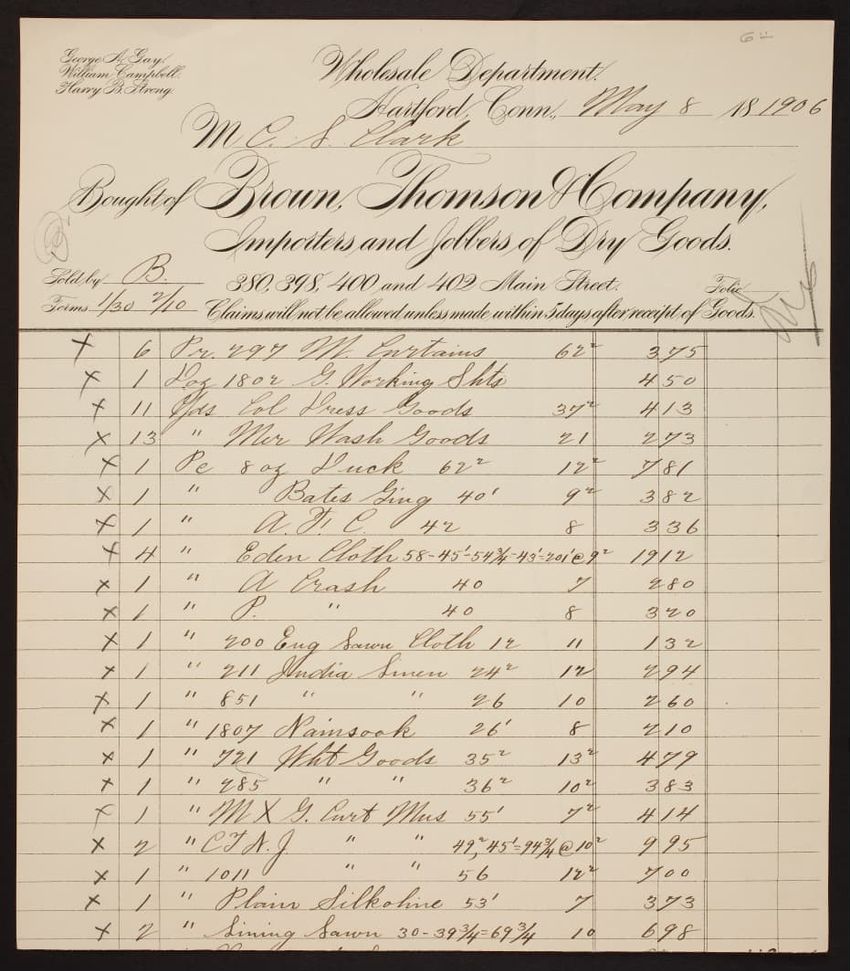 6
George A. Gay.
William Campbell.
Harry B. Strong.
Wholesale Department.
Hartford, Conn., May 8 18 1906
M C. S. Clark
Bought of Brown, Thomson & Company,
Importers and Jobbers of Dry Goods.
Sold by B. 380, 398, 400 and 402 Main Street. Folio
Terms 1/30 2/10 Claims will not be allowed unless made within 5 days after receipt of Goods.
X 6 Pr. 297 M. Curtains 62² 375
X 1 Doz 1802 G. Working Shts 450
X 11 Yds Col Dress Goods 37² 413
X 13 " Mer Wash Goods 21 273
X 1 Pc 8 oz Duck 62² 12² 781
X 1 " Bates Ging 40' 9² 382
X 1 " A. F. C. 42 8 336
X 4 " Eden Cloth 58-45'-54¾-43'=201'@9² 1912
X 1 " A Crash 40 7 280
X 1 " P. " 40 8 320
X 1 " 200 Eng Lawn Cloth 12 11 132
X 1 " 211 India Linen 24² 12 294
X 1 " 851 " " 26 10 260
X 1 " 1807 Nainsook 26' 8 210
X 1 " 721 Wht Goods 35² 13² 479
X 1 " 285 " " 36² 10² 383
X 1 " M X G. Curt Mus 55' 7² 414
X 2 " C T N. J " " 49², 45'=94¾@10² 995
X 1 " 1011 " " 56 12² 700
X 1 " Plain Silkoline 53' 7 373
X 2 " Lining Lawn 30-39¾=69¾ 10 698